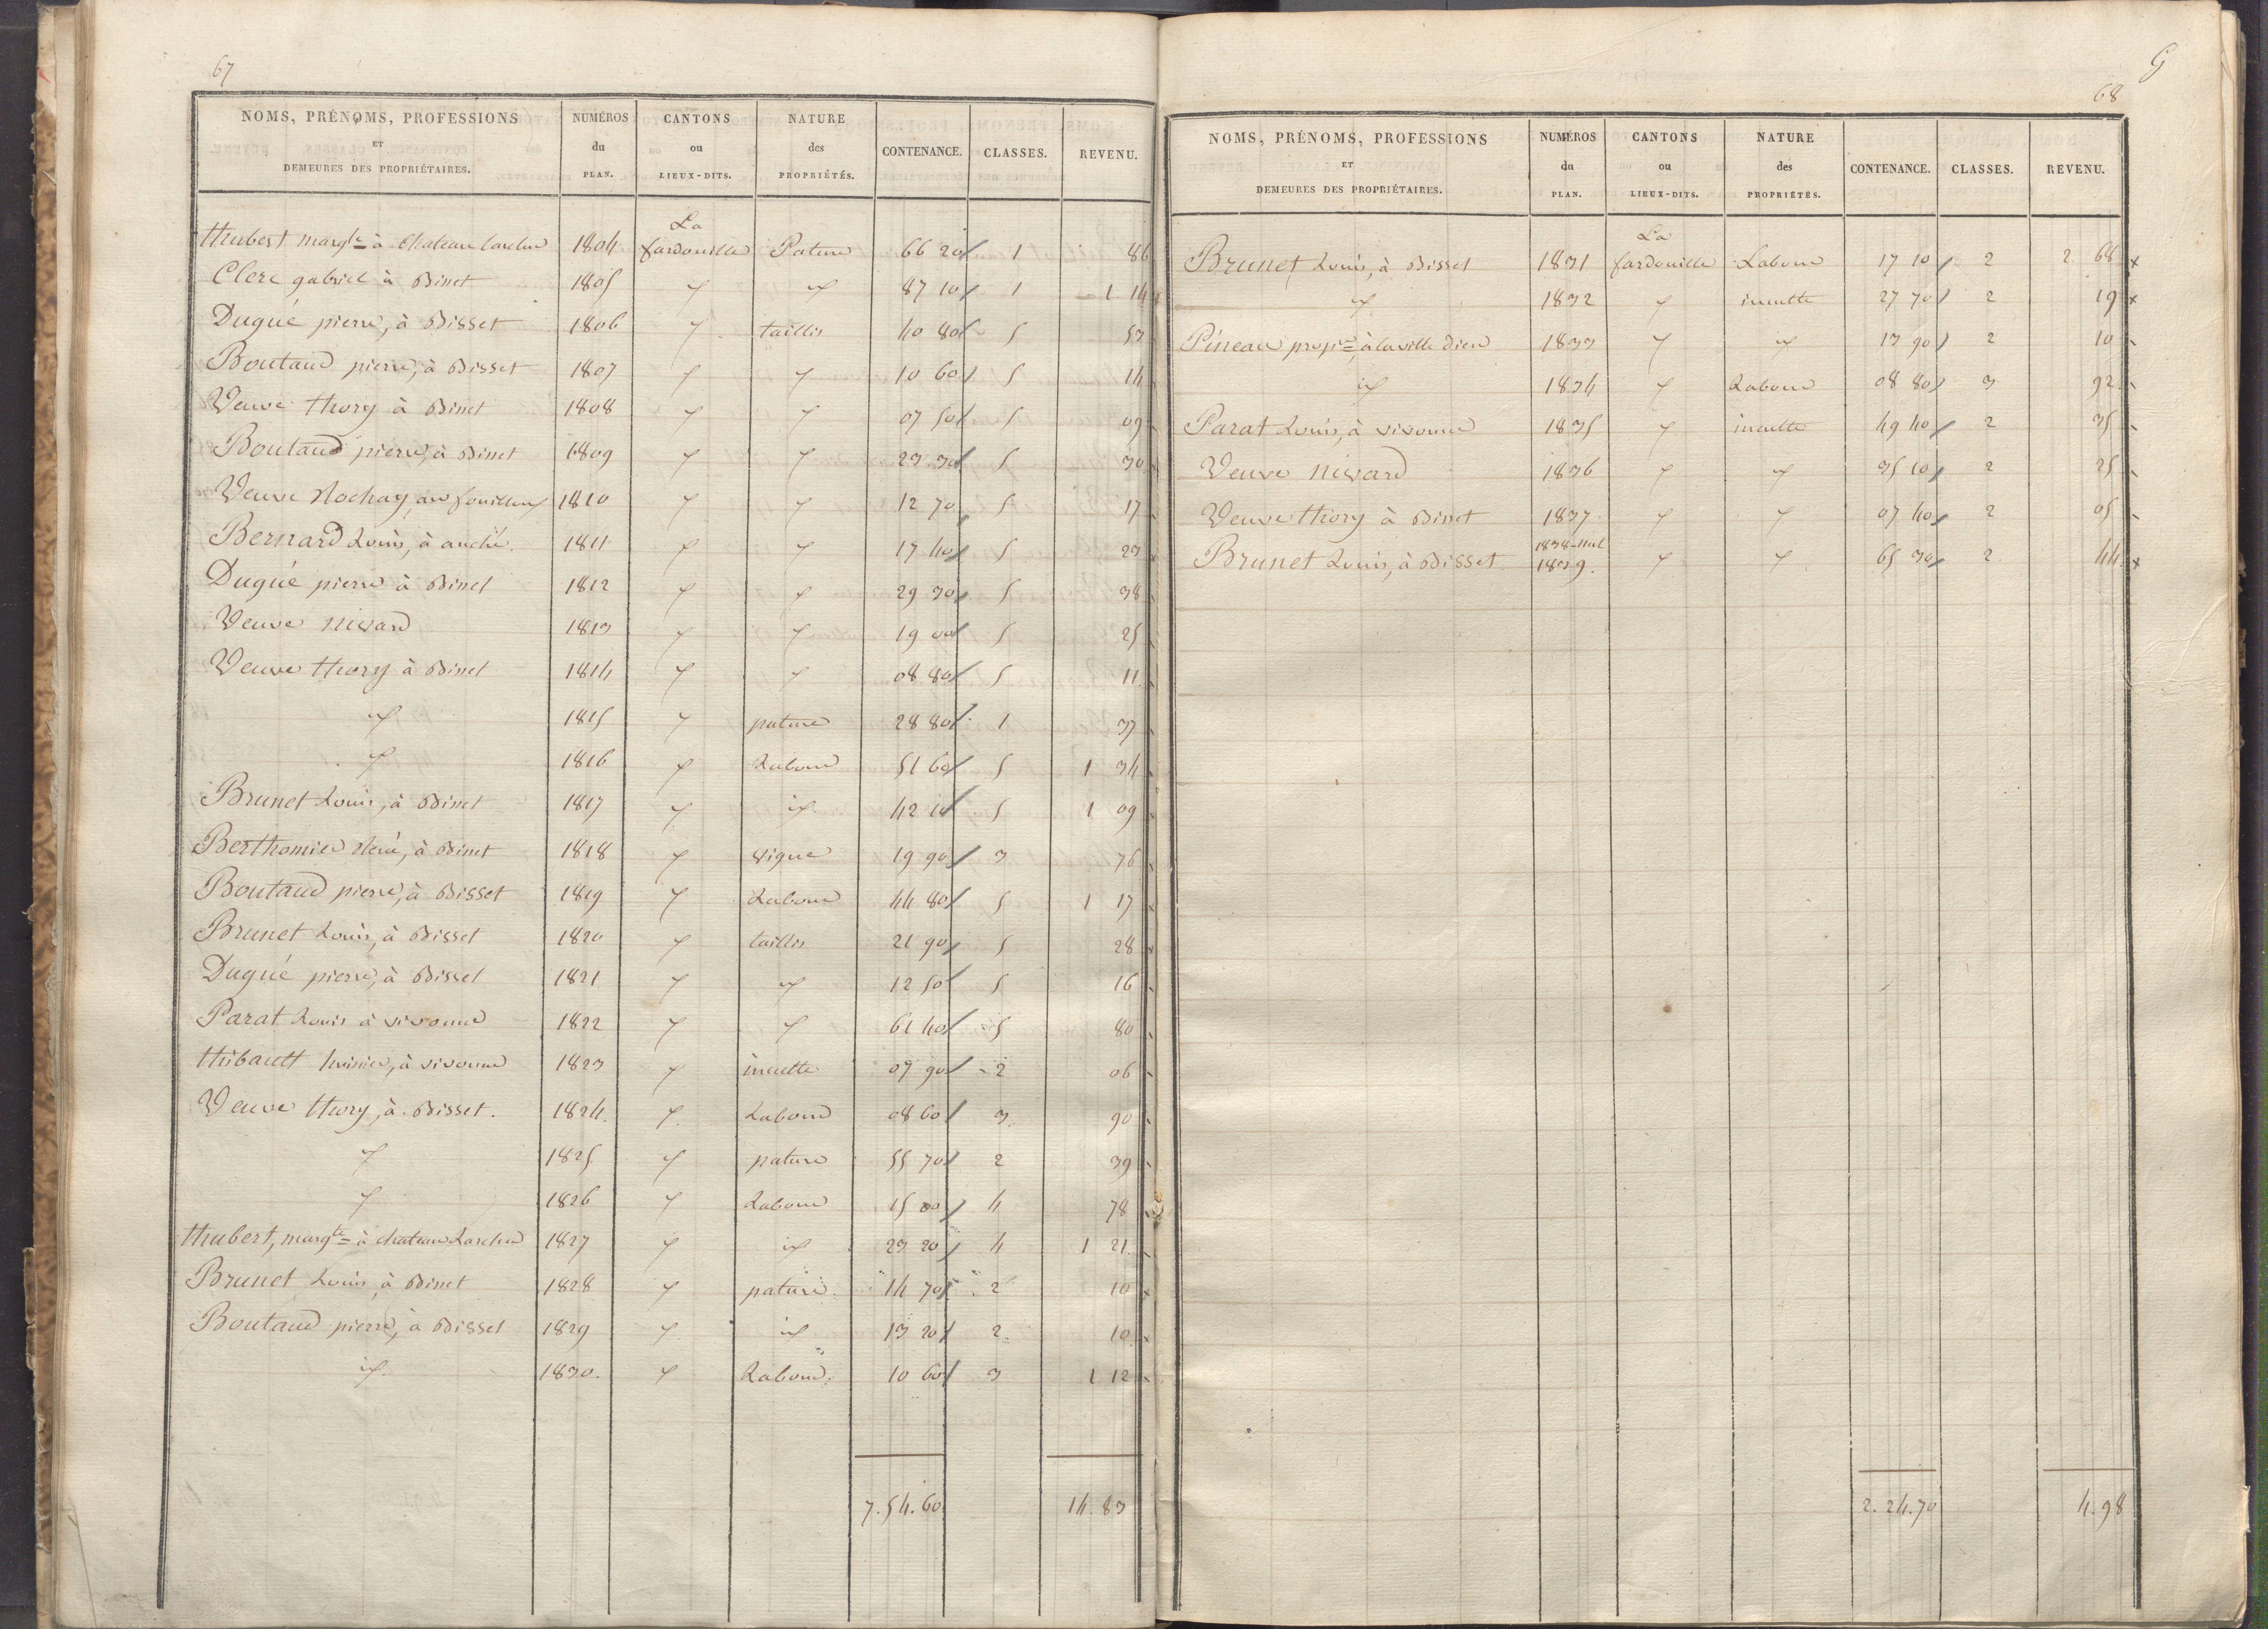 67
NOMS, PRÉNOMS, PROFESSIONS ET DEMEURES DES PROPRIÉTAIRES. NUMÉROS du PLAN. CANTONS ou LIEUX-DITS. NATURE des PROPRIÉTÉS. CONTENANCE. CLASSES. REVENU.
La
thubert margte à Chateau larcher 1804 fardouille Pature 66 20 1 86
Clerc gabriel à Disset 1805 " id 87 10 1 1 14
Dugué pierre, à Disset 1806 " taillis 40 80 5 53
Boutaud pierre, à Disset 1807 " " 10 60 5 14
Veuve thory à Disset 1808 " " 07 50 5 09
Boutaud pierre, à Disset 1809 " " 23 30 5 30
Veuve Rochay, au fouilloux 1810 " " 12 70 5 17
Bernard Louis, à anché. 1811 " " 17 40 5 23
Dugué pierre à Disset 1812 " " 29 30 5 38
Veuve nivard 1813 " " 19 00 5 25
Veuve thory à Disset 1814 " " 08 80 5 11
id 1815 " pature 28 80 1 37
" 1816 " Labour 51 60 5 1 34
Brunet Louis, à Disset 1817 " id 42 10 5 1 09
Berthomier René, à Disset 1818 " vigne 19 90 3 76
Boutaud pierre, à Disset 1819 " Labour 44 80 5 1 17
Brunet Louis, à Disset 1820 " taillis 21 90 5 28
Dugué pierre, à Disset 1821 " id 12 50 5 16
Parat Louis à vivonne 1822 " " 61 40 5 80
thibault huissier, à vivonne 1823 " inculte 07 90 2 06
Veuve thory, à Disset. 1824. " Labour 08 60 3 90
" 1825 " pature 55 70 2 39
" 1826 " Labour 15 00 4 78
thubert, margte à chateau Larcher 1827 " id 23 20 4 1 21
Brunet Louis, à Disset 1828 " pature 14 70 2 10
Boutaud pierre, à Disset 1829 " id 13 20 2 10
id. 1830. " Labour. 10 60 3 1 12
7.54.60 14.83
G
68
NOMS, PRÉNOMS, PROFESSIONS ET DEMEURES DES PROPRIÉTAIRES. NUMÉROS du PLAN. CANTONS ou LIEUX-DITS. NATURE des PROPRIÉTÉS. CONTENANCE. CLASSES. REVENU.
La
Brunet Louis, à Disset 1831 fardouille Labour 17 10 2 2 68
id 1832 " inculte 27 70 2 19
Pineau propre à la ville Dieu 1833 " id 13 90 2 10
id 1834 " Labour 08 80 3 92
Parat Louis, à vivonne 1835 " inculte 49 40 2 35
Veuve nivard 1836 " id 35 10 2 25
Veuve thory à Disset 1837 " " 07 40 2 05
1838 nul
Brunet Louis, à Disset. 1839. " " 65 30 2 44
2.24.70 4.98